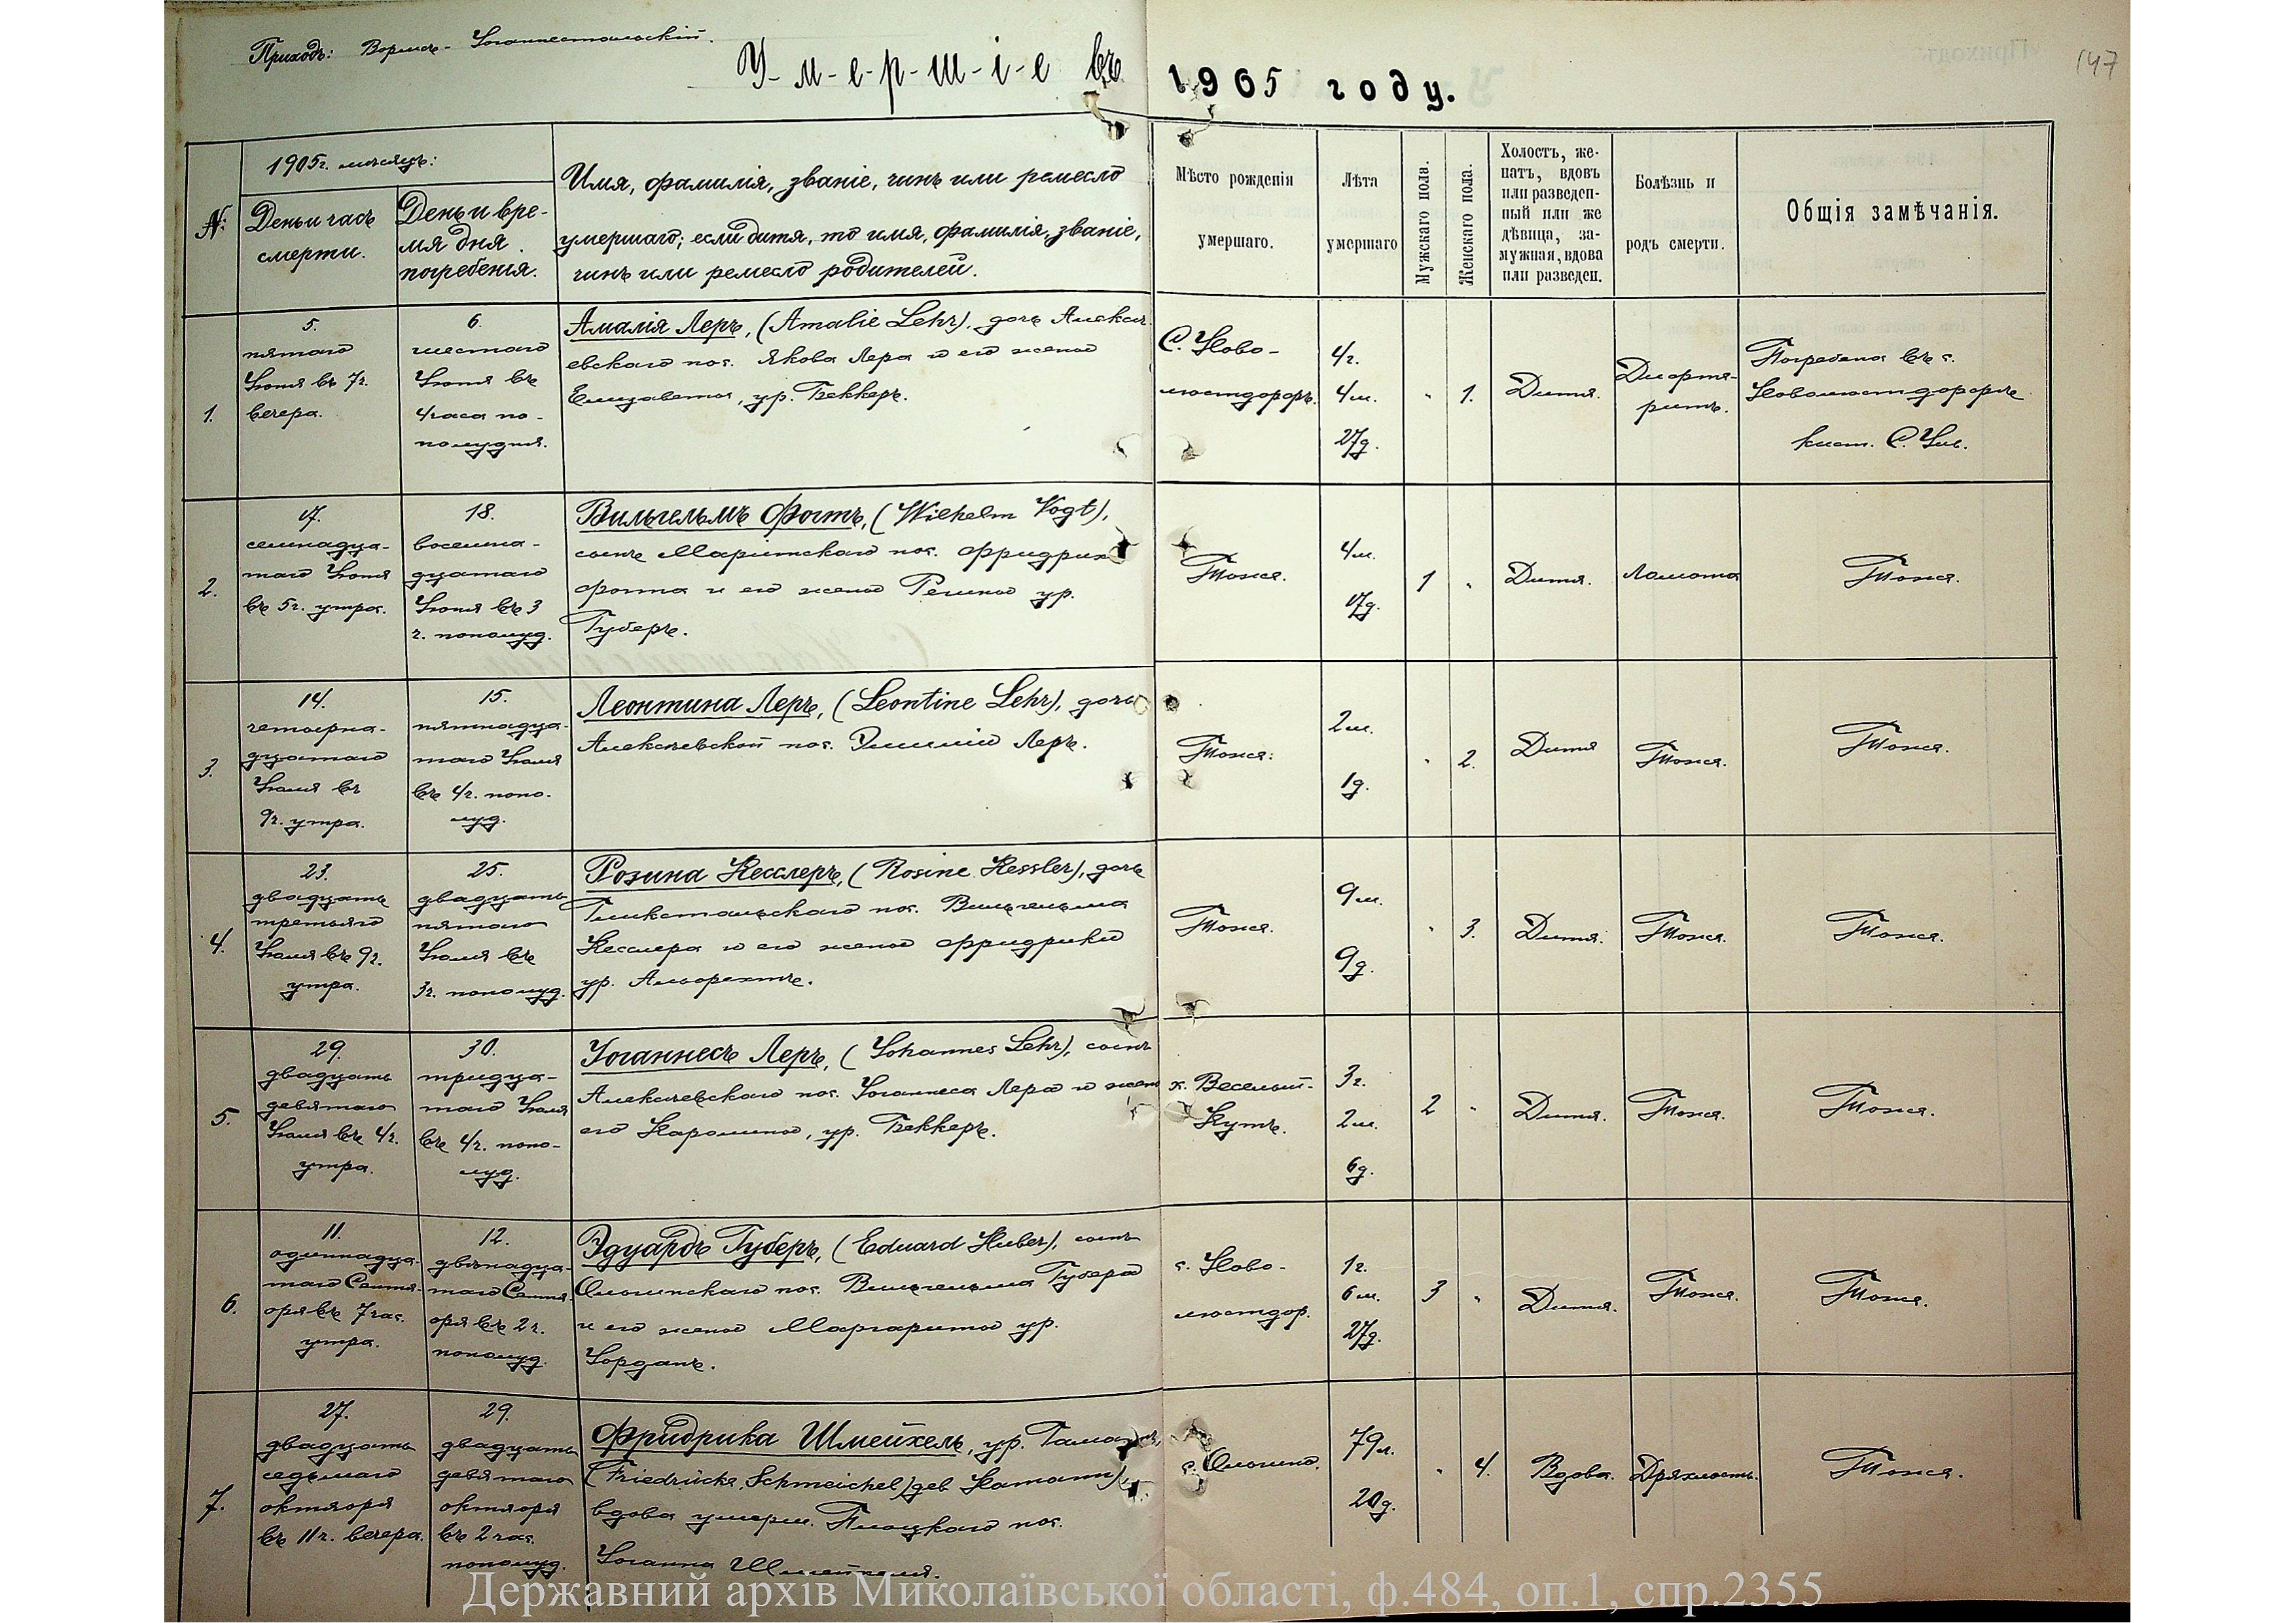 Приходъ: Вормсъ-Іоганнестальскій.
У-м-е-р-ш-і-е въ 1905 году.
147
№
1905г. мѣсяцъ:
День и часъ
смерти.
День и вре-
мя дня
погребенія.
Имя, фамилія, званіе, чинъ или ремесло
умершаго; если дитя, то имя, фамилія, званіе,
чинъ или ремесло родителей.
Мѣсто рожденія
умершаго.
Лѣта
умершаго
Мужскаго пола.
Женскаго пола.
Холостъ, же-
натъ, вдовъ
или разведен-
ный или же
дѣвица, за-
мужная, вдова
или разведен.
Болѣзнь и
родъ смерти.
Общія замѣчанія.
1.
5.
пятаго
Іюня въ 7г.
вечера.
6.
шестаго
Іюня въ
4 часа по-
полудня.
Амалія Леръ, (Amalie Lehr), дочь Алексѣ-
евскаго пос. Якова Лера и его жены
Елизаветы, ур. Беккеръ.
С. Ново-
люстдорфъ.
4г.
4м.
27д.
"
1.
Дитя.
Дифтя-
ритъ.
Погребена въ с.
Новолюстдорфѣ
кист. С.
2.
17.
семнадца-
таго Іюня
въ 5г. утра.
18.
восемна-
дцатаго
Іюня въ 3
ч. пополуд.
Вильгельмъ Фогтъ, (Wilhelm Vogt),
сынъ Маріинскаго пос. Фридриха
Фогта и его жены Регины ур.
Губеръ.
Тоже.
4м.
17д.
1
"
Дитя.
Ломота
Тоже.
3.
14.
четырна-
дцатаго
Іюля въ
9г. утра.
15.
пятнадца-
таго Іюля
въ 4г. попо-
луд.
Леонтина Леръ, (Leontine Lehr), дочь
Алексѣевской пос. Эмиліи Леръ.
Тоже.
2м.
1д.
"
2.
Дитя
Тоже.
Тоже.
4.
23.
двадцать
третьяго
Іюля въ 9г.
утра.
25.
двадцать
пятаго
Іюля въ
3г. пополуд.
Розина Кесслеръ, (Rosine Kessler), дочь
Гликстальскаго пос. Вильгельма
Кесслера и его жены Фридрики
ур. Альбрехтъ.
Тоже.
9м.
9д.
"
3.
Дитя.
Тоже.
Тоже.
5.
29.
двадцать
девятаго
Іюля въ 4г.
утра.
30.
тридца-
таго Іюля
въ 4г. попо-
луд.
Іоганнесъ Леръ, (Johannes Lehr), сынъ
Алексѣевскаго пос. Іоганнеса Лера и жены
его Каролины, ур. Беккеръ.
х. Веселый-
Кутъ.
3г.
2м.
6д.
2
"
Дитя.
Тоже.
Тоже.
6.
11.
одиннадца-
таго Сентя-
бря въ 7 час.
утра.
12.
двѣнадца-
таго Сентя-
бря въ 2г.
пополуд.
Эдуардъ Губеръ, (Eduard Huber), сынъ
Ольгинскаго пос. Вильгельма Губера
и его жены Маргариты ур.
Іорданъ.
с. Ново-
люстдор.
1г.
6м.
27д.
3
"
Дитя.
Тоже.
Тоже.
7.
27.
двадцать
седьмаго
октября
въ 11г. вечера.
29.
двадцать
девятаго
октября
въ 2 час.
пополуд.
Фридрика Шмейхель, ур. Гаманъ,
(Friedricke Schmeichel) geb Hamann),
вдова умерш. Плоцкаго пос.
Іоганна Шмейхеля.
с. Ольгино.
79л.
20д.
"
4.
Вдова.
Дряхлость.
Тоже.
Державний архів Миколаївської області, ф.484, оп.1, спр.2355